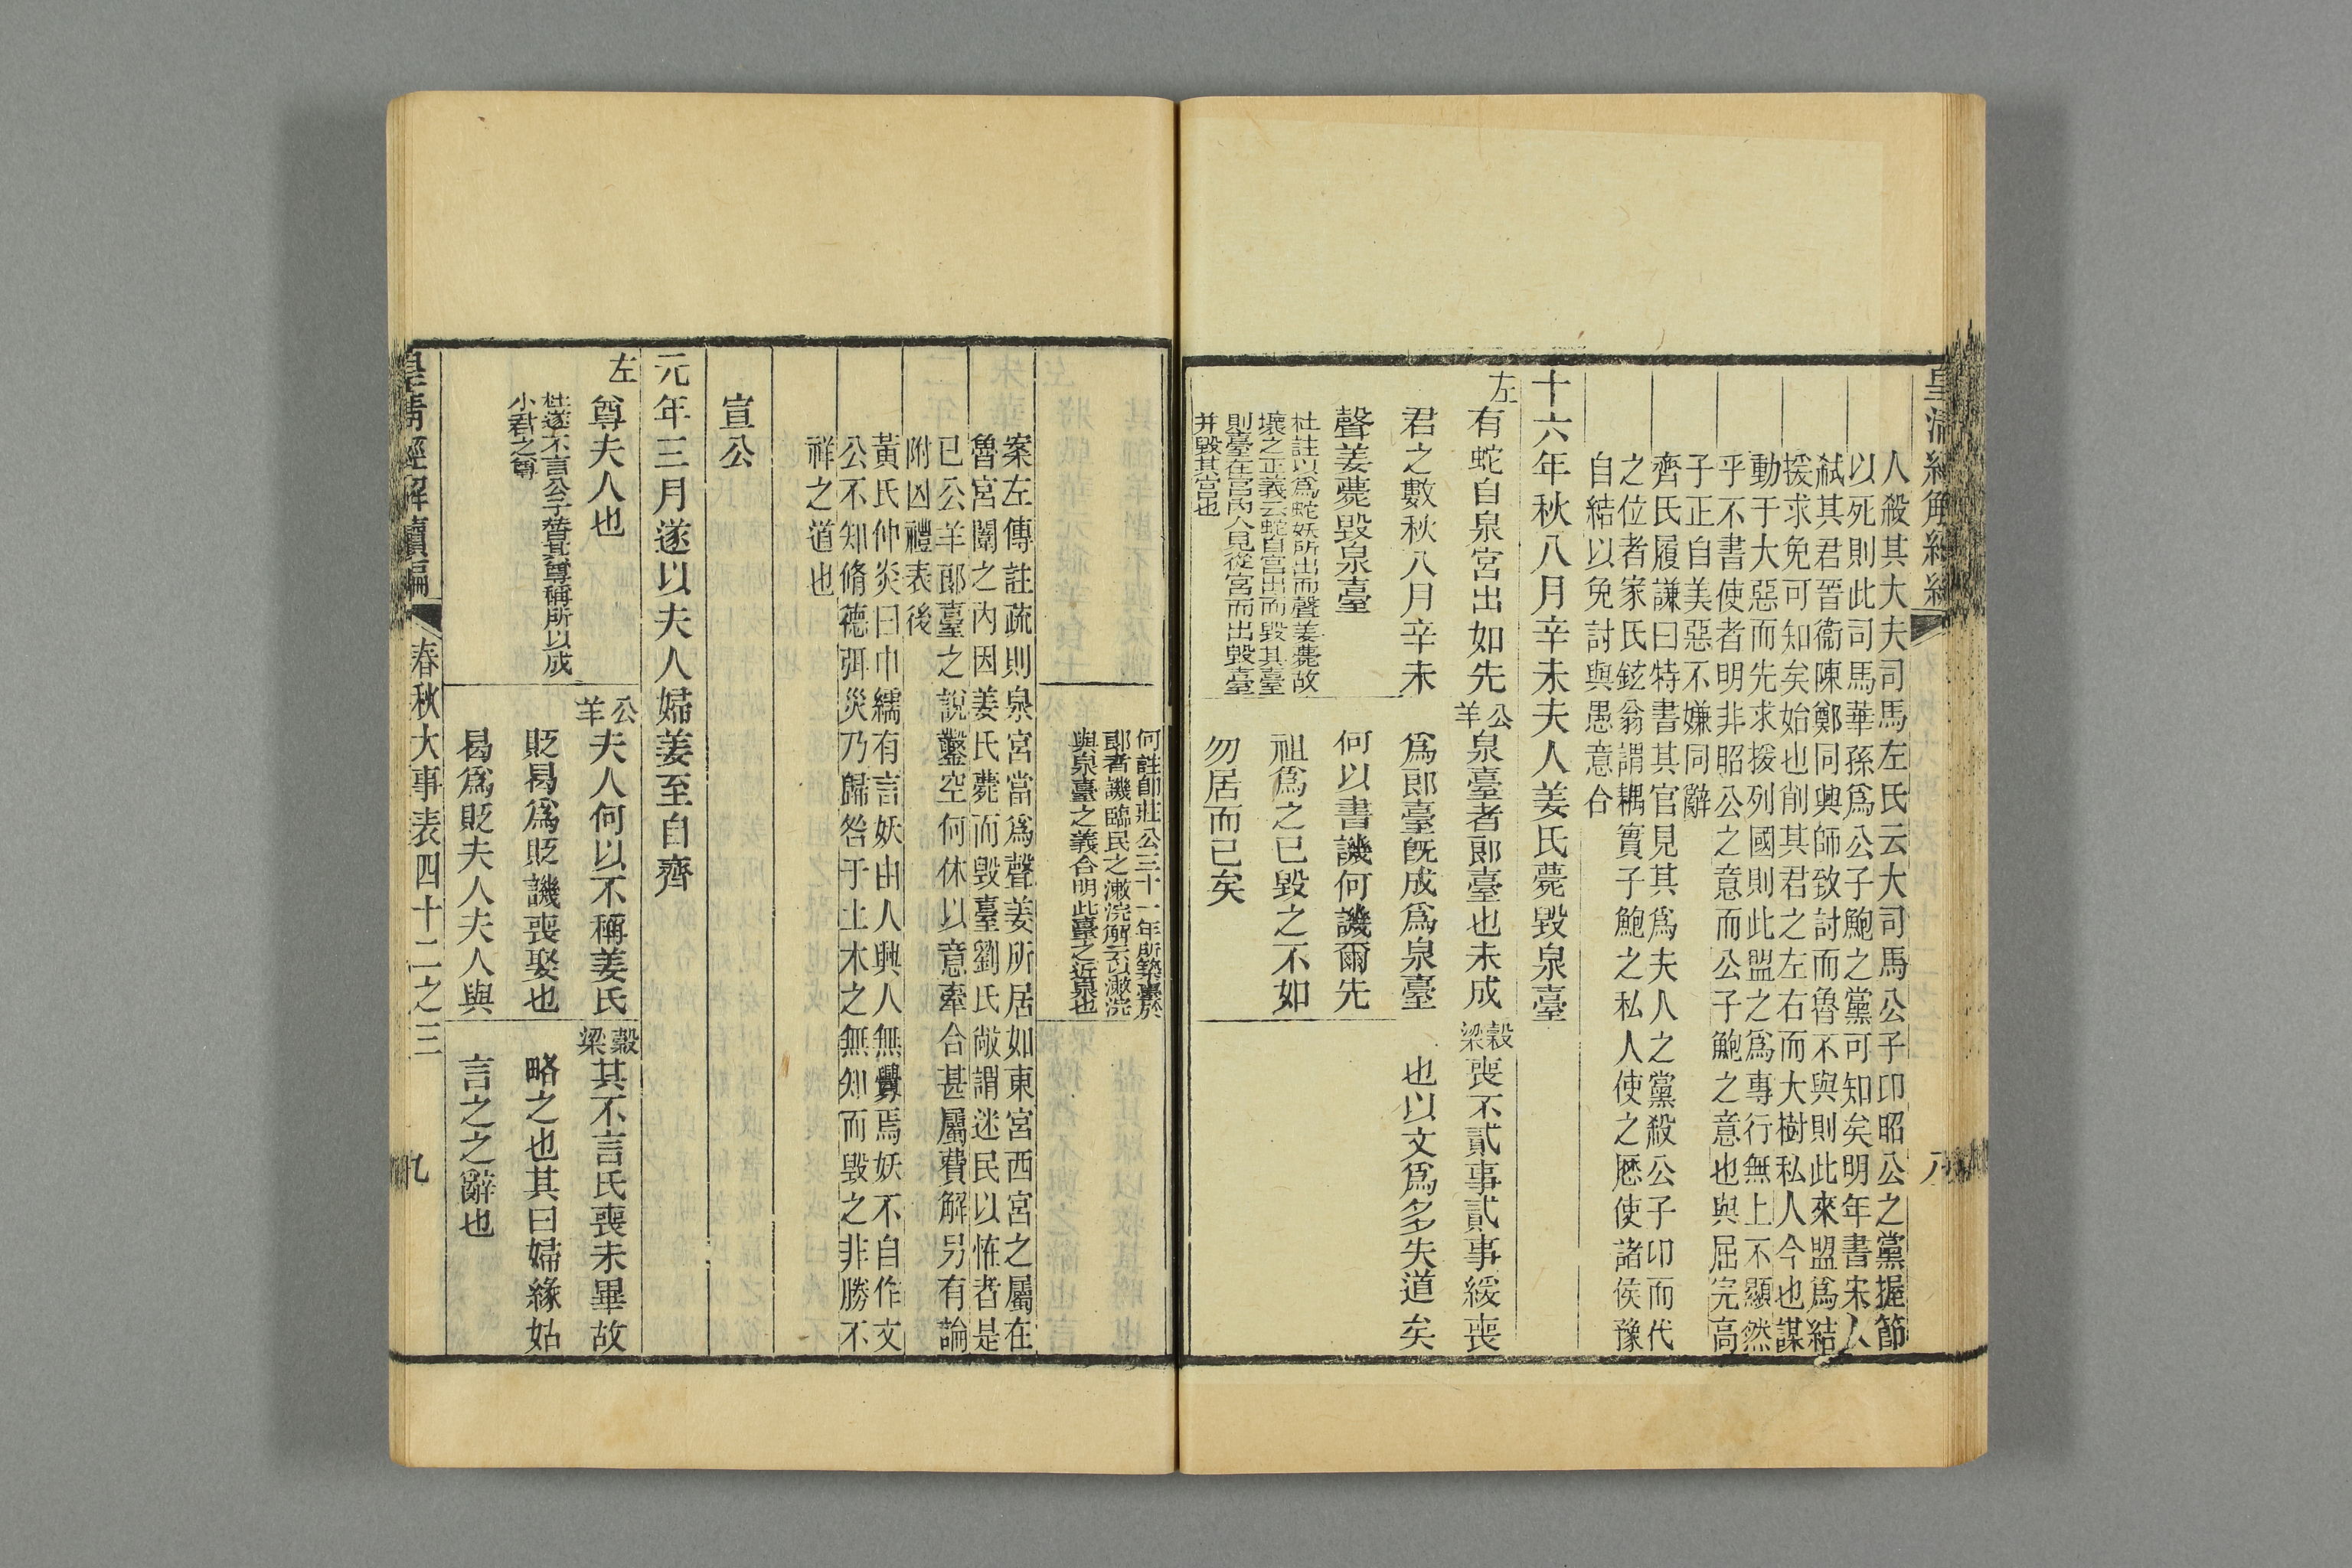 人殺其大夫司馬左氏云大司馬公子卬昭公之黨握節
以死則此司馬華孫爲公子鮑之黨可知矣明年書宋人
弑其君晉衞陳鄭同興師致討而魯不與則此來盟爲結
援求免可知矣始也削其君之左右而大樹私人今也謀
動于大惡而先求援列國則此盟之爲專行無上不顯然
乎不書使者明非昭公之意而公子鮑之意也與屈完高
子正自美惡不嫌同辭
齊氏履謙曰特書其官見其爲夫人之黨殺公子卬而代
之位者家氏鉉翁謂耦實子鮑之私人使之歷使諸侯豫
自結以免討與愚意合
十六年秋八月辛未夫人姜氏薨毀泉臺
左
有蛇自泉宮出如先
君之數秋八月辛未
聲姜薨毀泉臺
杜註以爲蛇妖所出而聲姜薨故
壞之正義云蛇自宮出而毀其臺
則臺在宮內人見從宮而出毀臺
并毀其宮也
公羊
泉臺者郎臺也未成
爲郎臺旣成爲泉臺
何以書譏何譏爾先
祖爲之已毀之不如
勿居而已矣
何註卽莊公三十一年所築臺於
郎者譏臨民之漱浣解云以漱浣
與泉臺之義合明此臺之近泉也
穀梁
喪不貳事貳事綏喪
也以文爲多失道矣
案左傳註疏則泉宮當爲聲姜所居如東宮西宮之屬在
魯宮闈之內因姜氏薨而毀臺劉氏敞謂迷民以怪者是
已公羊郎臺之說鑿空何休以意牽合甚屬費解另有論
附凶禮表後
黃氏仲炎曰巾繻有言妖由人興人無釁焉妖不自作文
公不知脩德弭災乃歸咎于土木之無知而毀之非勝不
祥之道也
宣公
元年三月遂以夫人婦姜至自齊
左
尊夫人也
杜遂不言公子替其尊稱所以成
小君之尊
公羊
夫人何以不稱姜氏
貶曷爲貶譏喪娶也
曷爲貶夫人夫人與
穀梁
其不言氏喪未畢故
略之也其曰婦緣姑
言之之辭也
皇清經解續編
春秋大事表四十二之三
九